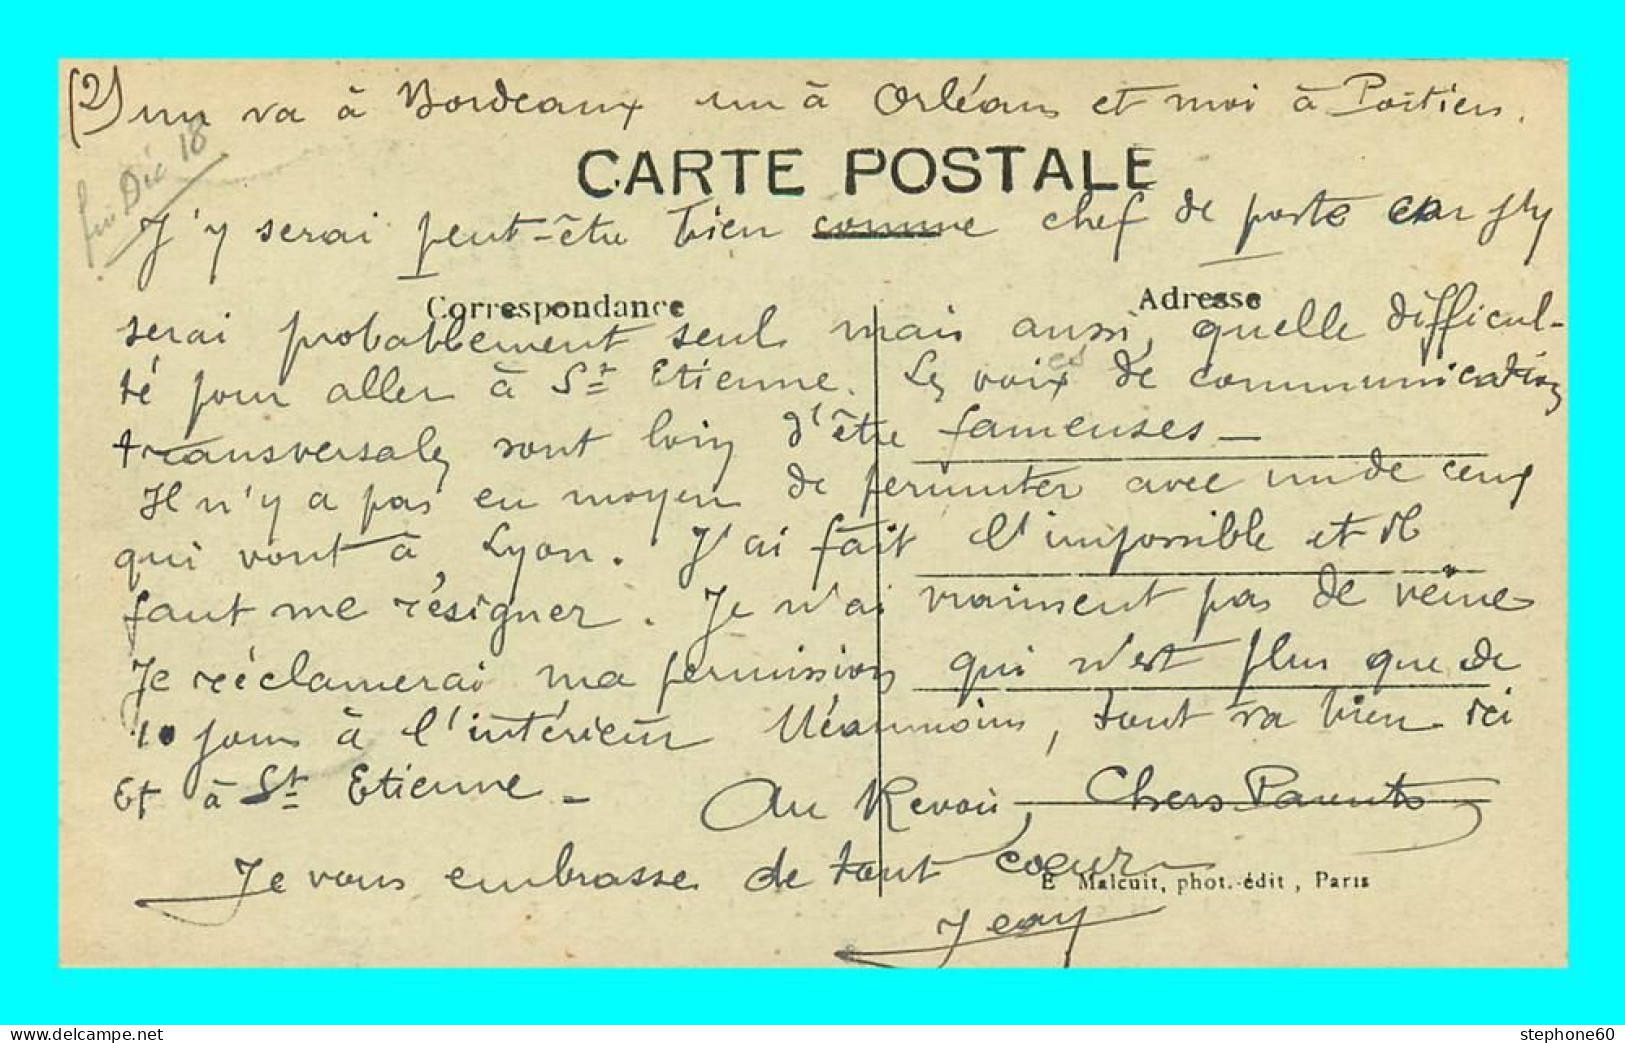 (2) un va à Bordeaux un à Orléans et moi à Poitiers.
fin Déc 18
CARTE POSTALE
J'y serai peut-être bien comme chef de poste car j'y
Correspondance
Adresse
serai probablement seul mais aussi, quelle difficul-
té pour aller à St Etienne. Les voix es de communications
transversales sont loin d'être fameuses —
Il n'y a pas eu moyen de permuter avec un de ceux
qui vont à Lyon. J'ai fait l'impossible et il
faut me résigner. Je n'ai vraiment pas de veine
Je réclamerai ma permission qui n'est plus que de
10 jours à l'intérieur Néanmoins, tout va bien ici
Et à St Etienne —
Au Revoir, Chers Parents
Je vous embrasse de tout coeur
E Malcuit, phot.-édit, Paris
Jean
www.delcampe.net
stephone60